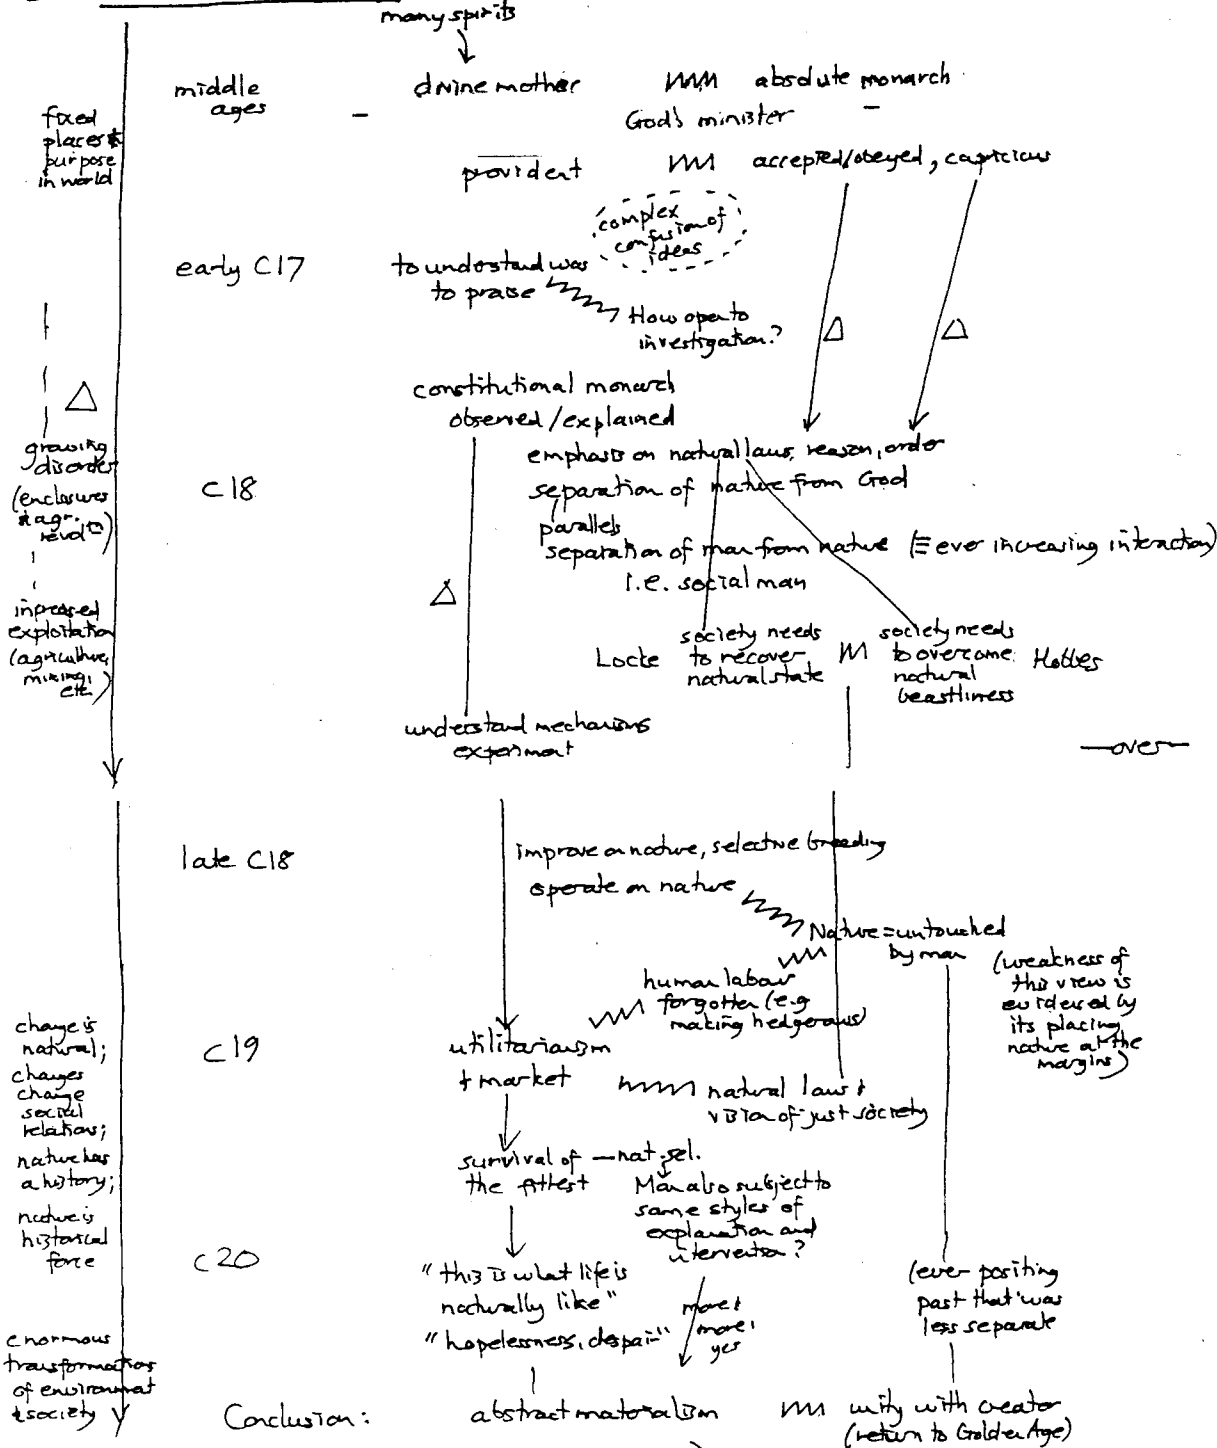 many spirits
middle
ages
-
divine mother
absolute monarch
-
God's minister
fixed
places &
purpose
in world
provident
accepted/obeyed, capricious
complex
confusion of
ideas
early C17
to understand was
to praise
How open to
investigation?
Δ
Δ
Δ
constitutional monarch
observed/explained
growing
disorder
(enclosures
& agr.
revoltn)
C18
emphasis on natural laws, reason, order
separation of nature from God
parallels
separation of man from nature (≡ ever increasing interaction)
i.e. social man
Δ
increased
exploitation
(agriculture,
mining,
etc.)
Locke
society needs
to recover
natural state
society needs
to overcome
natural
beastliness
Hobbes
understand mechanisms
experiment
—over—
late C18
improve on nature, selective breeding
operate on nature
Nature = untouched
by man
(weakness of
this view is
evidenced by
its placing
nature at the
margins)
human labour
forgotten (e.g.
making hedgerows)
change is
natural;
changes
change
social
relations;
nature has
a history;
nature is
historical
force
C19
utilitarianism
+ market
natural laws +
vision of just society
survival of — nat. sel.
the fittest
Man also subject to
same styles of
explanation and
intervention?
C20
"this is what life is
naturally like"
"hopelessness, despair"
more!
more!
yes
(ever positing
past that was
less separate
enormous
transformations
of environment
& society
Conclusion:
abstract materialism
unity with creator
(return to Golden Age)